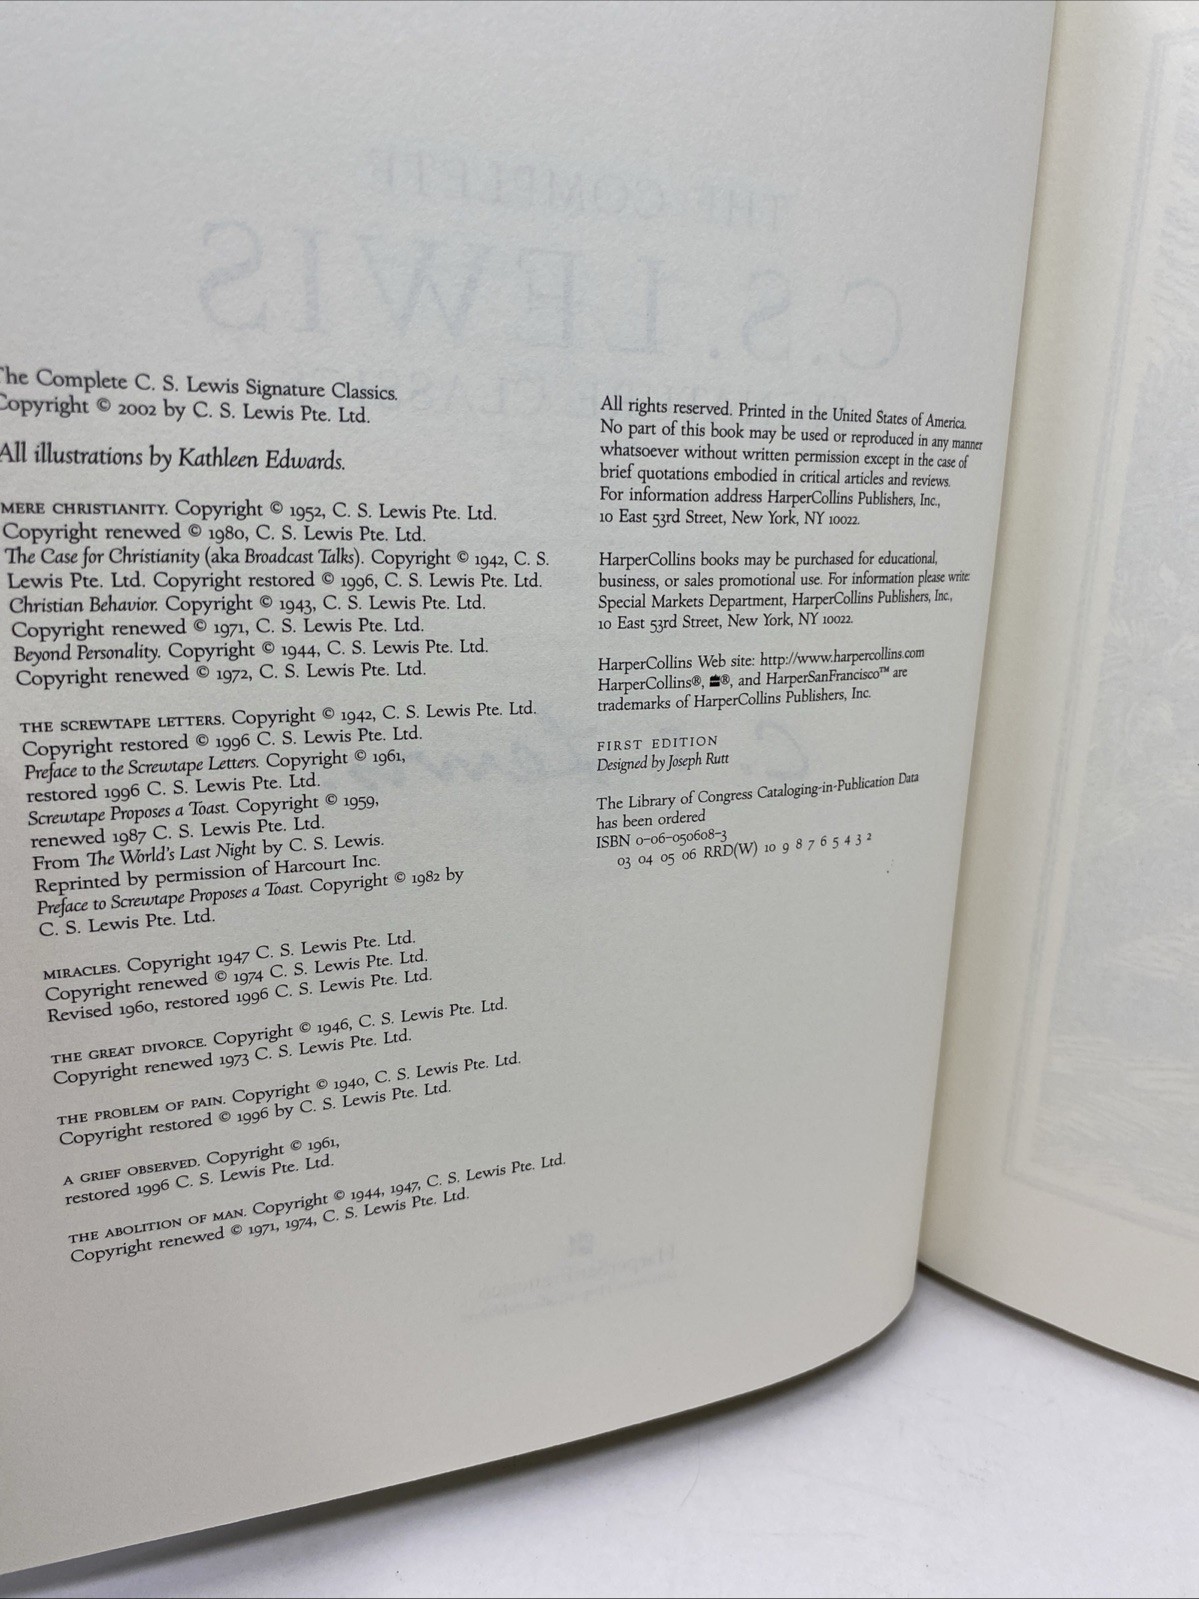 The Complete C. S. Lewis Signature Classics.
Copyright © 2002 by C. S. Lewis Pte. Ltd.
All illustrations by Kathleen Edwards.
MERE CHRISTIANITY. Copyright © 1952, C. S. Lewis Pte. Ltd.
Copyright renewed © 1980, C. S. Lewis Pte. Ltd.
The Case for Christianity (aka Broadcast Talks). Copyright © 1942, C. S.
Lewis Pte. Ltd. Copyright restored © 1996, C. S. Lewis Pte. Ltd.
Christian Behavior. Copyright © 1943, C. S. Lewis Pte. Ltd.
Copyright renewed © 1971, C. S. Lewis Pte. Ltd.
Beyond Personality. Copyright © 1944, C. S. Lewis Pte. Ltd.
Copyright renewed © 1972, C. S. Lewis Pte. Ltd.
THE SCREWTAPE LETTERS. Copyright © 1942, C. S. Lewis Pte. Ltd.
Copyright restored © 1996 C. S. Lewis Pte. Ltd.
Preface to the Screwtape Letters. Copyright © 1961,
restored 1996 C. S. Lewis Pte. Ltd.
Screwtape Proposes a Toast. Copyright © 1959,
renewed 1987 C. S. Lewis Pte. Ltd.
From The World's Last Night by C. S. Lewis.
Reprinted by permission of Harcourt Inc.
Preface to Screwtape Proposes a Toast. Copyright © 1982 by
C. S. Lewis Pte. Ltd.
MIRACLES. Copyright 1947 C. S. Lewis Pte. Ltd.
Copyright renewed © 1974 C. S. Lewis Pte. Ltd.
Revised 1960, restored 1996 C. S. Lewis Pte. Ltd.
THE GREAT DIVORCE. Copyright © 1946, C. S. Lewis Pte. Ltd.
Copyright renewed 1973 C. S. Lewis Pte. Ltd.
THE PROBLEM OF PAIN. Copyright © 1940, C. S. Lewis Pte. Ltd.
Copyright restored © 1996 by C. S. Lewis Pte. Ltd.
A GRIEF OBSERVED. Copyright © 1961,
restored 1996 C. S. Lewis Pte. Ltd.
THE ABOLITION OF MAN. Copyright © 1944, 1947, C. S. Lewis Pte. Ltd.
Copyright renewed © 1971, 1974, C. S. Lewis Pte. Ltd.
All rights reserved. Printed in the United States of America.
No part of this book may be used or reproduced in any manner
whatsoever without written permission except in the case of
brief quotations embodied in critical articles and reviews.
For information address HarperCollins Publishers, Inc.,
10 East 53rd Street, New York, NY 10022.
HarperCollins books may be purchased for educational,
business, or sales promotional use. For information please write:
Special Markets Department, HarperCollins Publishers, Inc.,
10 East 53rd Street, New York, NY 10022.
HarperCollins Web site: http://www.harpercollins.com
HarperCollins®, ®, and HarperSanFrancisco™ are
trademarks of HarperCollins Publishers, Inc.
FIRST EDITION
Designed by Joseph Rutt
The Library of Congress Cataloging-in-Publication Data
has been ordered
ISBN 0-06-050608-3
03 04 05 06 RRD(W) 10 9 8 7 6 5 4 3 2